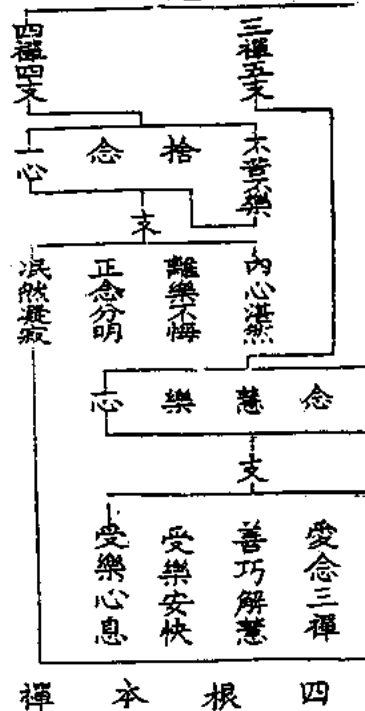 三禪五支
四禪四支
不苦不樂
捨
念
一心
支
內心湛然
離樂不悔
正念分明
泯然凝寂
念
慧
樂
心
支
愛念三禪
善巧解慧
受樂安快
受樂心息
四根本禪